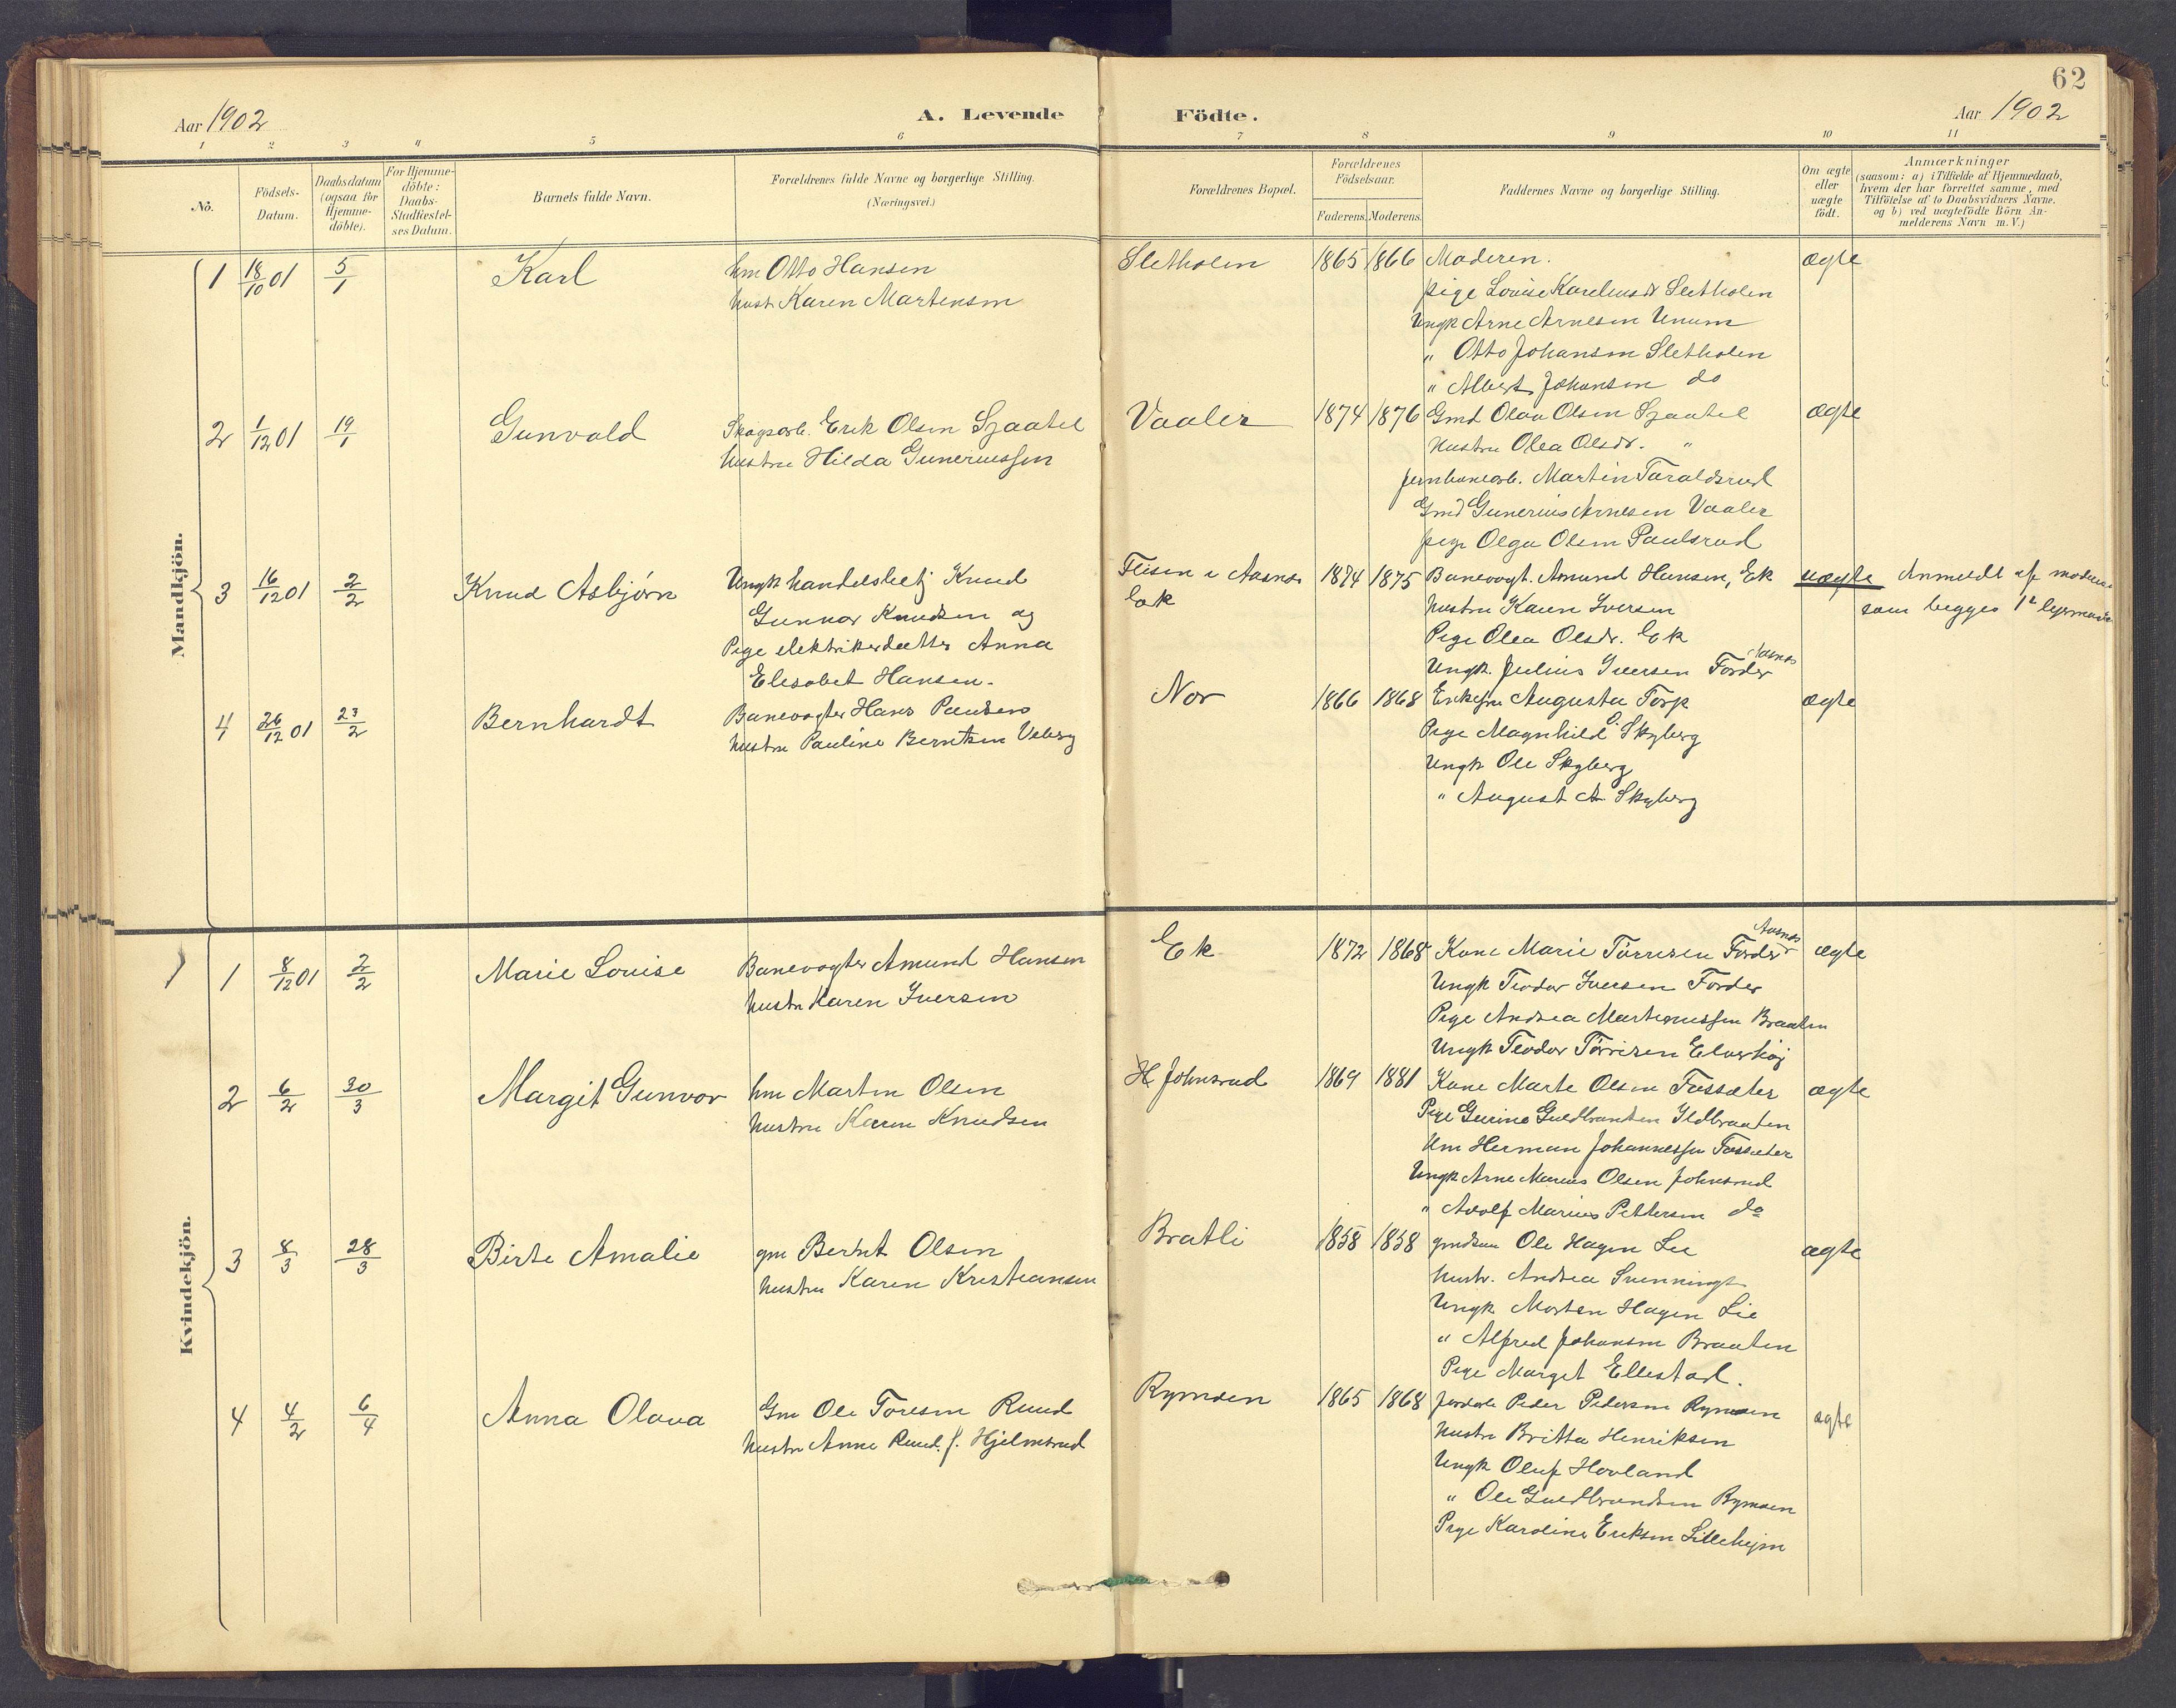 62
Aar 1902
A. Levende Födte.
Aar 1902
1 2 3 4 5 6 7 8 9 10 11
No.
Födsels-
Datum.
Daabsdatum
(ogsaa for
Hjemme-
döbte).
For Hjemme-
döbte:
Daabs-
Stadfæstel-
ses Datum.
Barnets fulde Navn.
Forældrenes fulde Navne og borgerlige Stilling.
(Næringsvei.)
Forældrenes Bopæl.
Forældrenes
Födselsaar.
Faderens. Moderens.
Faddernes Navne og borgerlige Stilling.
Om ægte
eller
uægte
födt.
Anmærkninger
(saasom: a) i Tilfælde af Hjemmedaab,
hvem der har forrettet samme, med
Tilföielse af to Daabsvidners Navne.
og b) ved uægtefödte Börn An-
melderens Navn m. V.)
Mandkjön.
1 18/10 01 5/1 Karl
hm Otto Hansen
hust Karen Martensen
Sletholen 1865 1866
Moderen.
pige Louise Kareliusdr Sletholen
Ungk Arne Arnesen Unum
" Otto Johansen Sletholen
" Albert Johansen do
ægte
2 1/12 01 19/1 Gunvald
Skogsarb. Erik Olsen Sjaatil
hustru Hilda Guneriussen
Vaaler 1874 1876
Gmd Olav Olsen Sjaatil
hustru Olea Olsdr. "
jernbanearb. Martin Taraldsrud
Gmd Gunerius Arnesen Vaaler
pige Olga Olsen Paulsrud
ægte
3 16/12 01 2/2 Knud Asbjørn
Ungk handelsbetj Knud
Gunnar Knudsen og
Pige elektrikerdatter Anna
Elisabet Hansen.
Flisen i Aasnes
Eek
1874 1875
Banevogt. Amund Hansen, Ek
hustru Karen Iversen
Pige Olea Olsdr. Ek
Ungk. Julius Iversen Forder Aasnes
uægte
Anmeldt af moderen
som begges 1ste leiermaal
4 26/12 01 23/2 Bernhardt
Banevogter Hans Paulsen
hustru Pauline Berntsen Veberg
Nor 1866 1868
Enkefru Augusta Torp
Pige Magnhild O. Skyberg
Ungk Ole Skyberg
" August A. Skyberg
ægte
Kvindekjön.
1 8/12 01 2/2 Marie Louise
Banevogter Amund Hansen
hustru Karen Iversen
Ek 1872 1868
Kone Marie Tørresen Forder Aasnes
Ungk Teodor Iversen Forder
Pige Andrea Martinussen Braaten
Ungk Teodor Tørrisen Elverhøj
ægte
2 6/2 30/3 Margit Gunvor
hm Martin Olsen
hustru Karen Knudsen
H Johnsrud 1869 1881
Kone Marte Olsen Fossæter
Pige Gurine Guldbrandsen Ildbraaten
hm Herman Johannessen Fossæter
Ungk Arne Marius Olsen Johnsrud
" Adolf Marius Pettersen do
ægte
3 8/3 28/3 Birte Amalie
gm Bernt Olsen
hustru Karen Kristiansen
Bratli 1858 1858
gmdsm Ole Hagen Lie
hustr. Andrea Svennings
Ungk Morten Hagen Lie
" Alfred Johansen Braaten
Pige Marget Ellestad.
ægte
4 4/2 6/4 Anna Olava
Gm Ole Toresen Ruud
hustru Anne Ruud f. Hjelmsrud
Rymoen 1865 1868
jordarb Peder Pedersen Rymoen
hustru Britta Henriksen
Ungk Oluf Hovland
" Ole Guldbrandsen Rymoen
Pige Karoline Eriksen Lillehjem
ægte